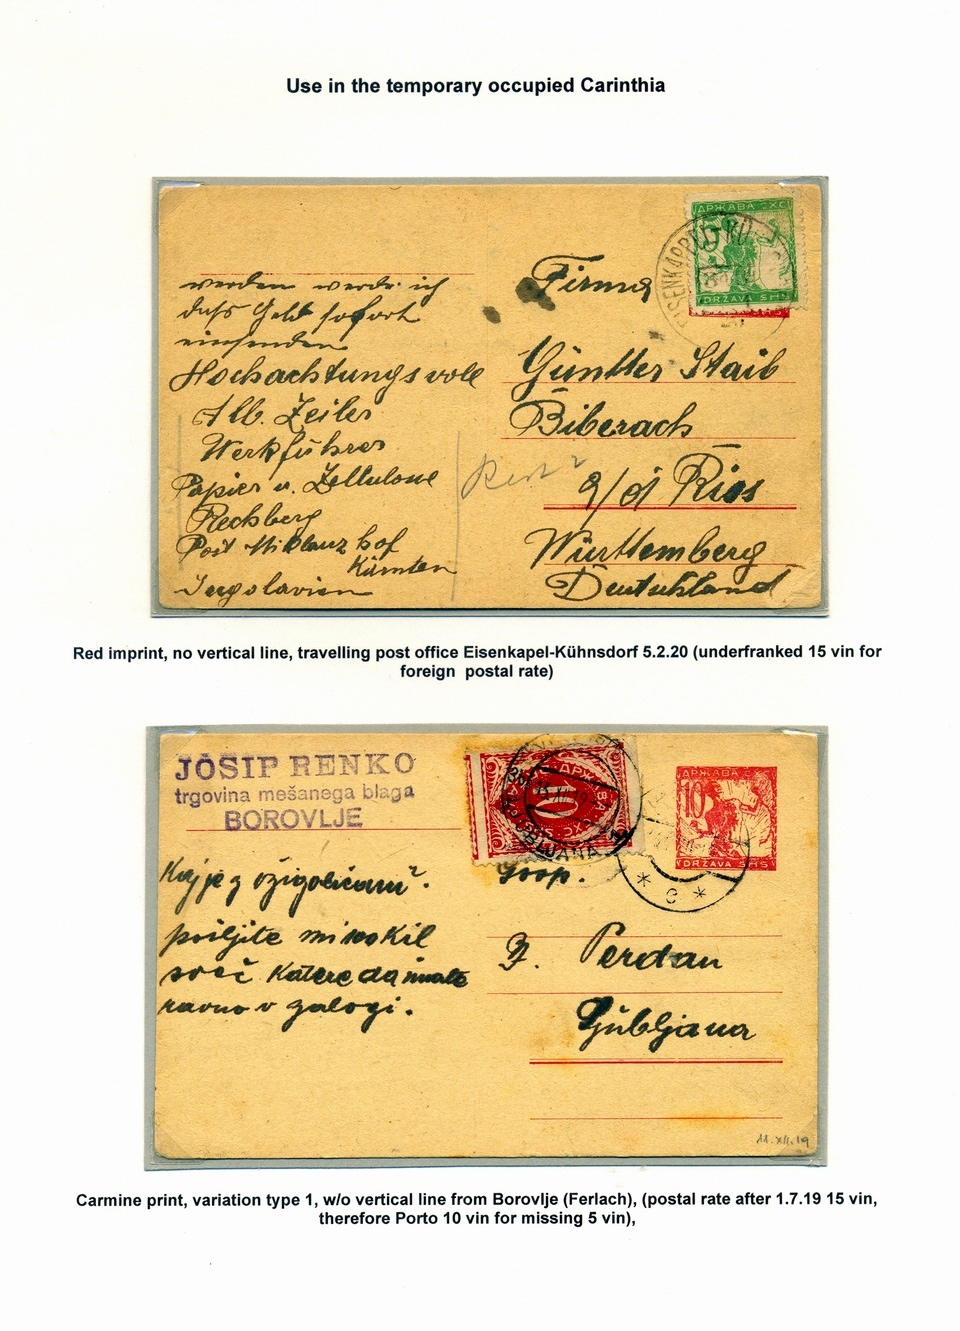 Use in the temporary occupied Carinthia
ДРЖАВА СХС
5
DRŽAVA SHS
EISENKAPPEL-KÜ
werden werde ich
dass Geld sofort
einsenden
Hochachtungsvoll
Alb. Zeiler
Werkführer
Papier u. Zellulose
Rechberg
Post Miklauzhof
Kärnten
Jugoslavien
Firma
Günther Staib
Biberach
a/d Riss
Württemberg
Deutschland
Red imprint, no vertical line, travelling post office Eisenkapel-Kühnsdorf 5.2.20 (underfranked 15 vin for
foreign postal rate)
JOSIP RENKO
trgovina mešanega blaga
BOROVLJE
ДРЖАВА СХС
10
LJUBLJANA
ДРЖАВА СХС
10
DRŽAVA SHS
* c *
Kaj je z vžigalicami?
pošljite mi 100 kil
sveč katere da imate
ravno v zalogi.
Gosp.
Perdan
Ljubljana
11.XII.19
Carmine print, variation type 1, w/o vertical line from Borovlje (Ferlach), (postal rate after 1.7.19 15 vin,
therefore Porto 10 vin for missing 5 vin),